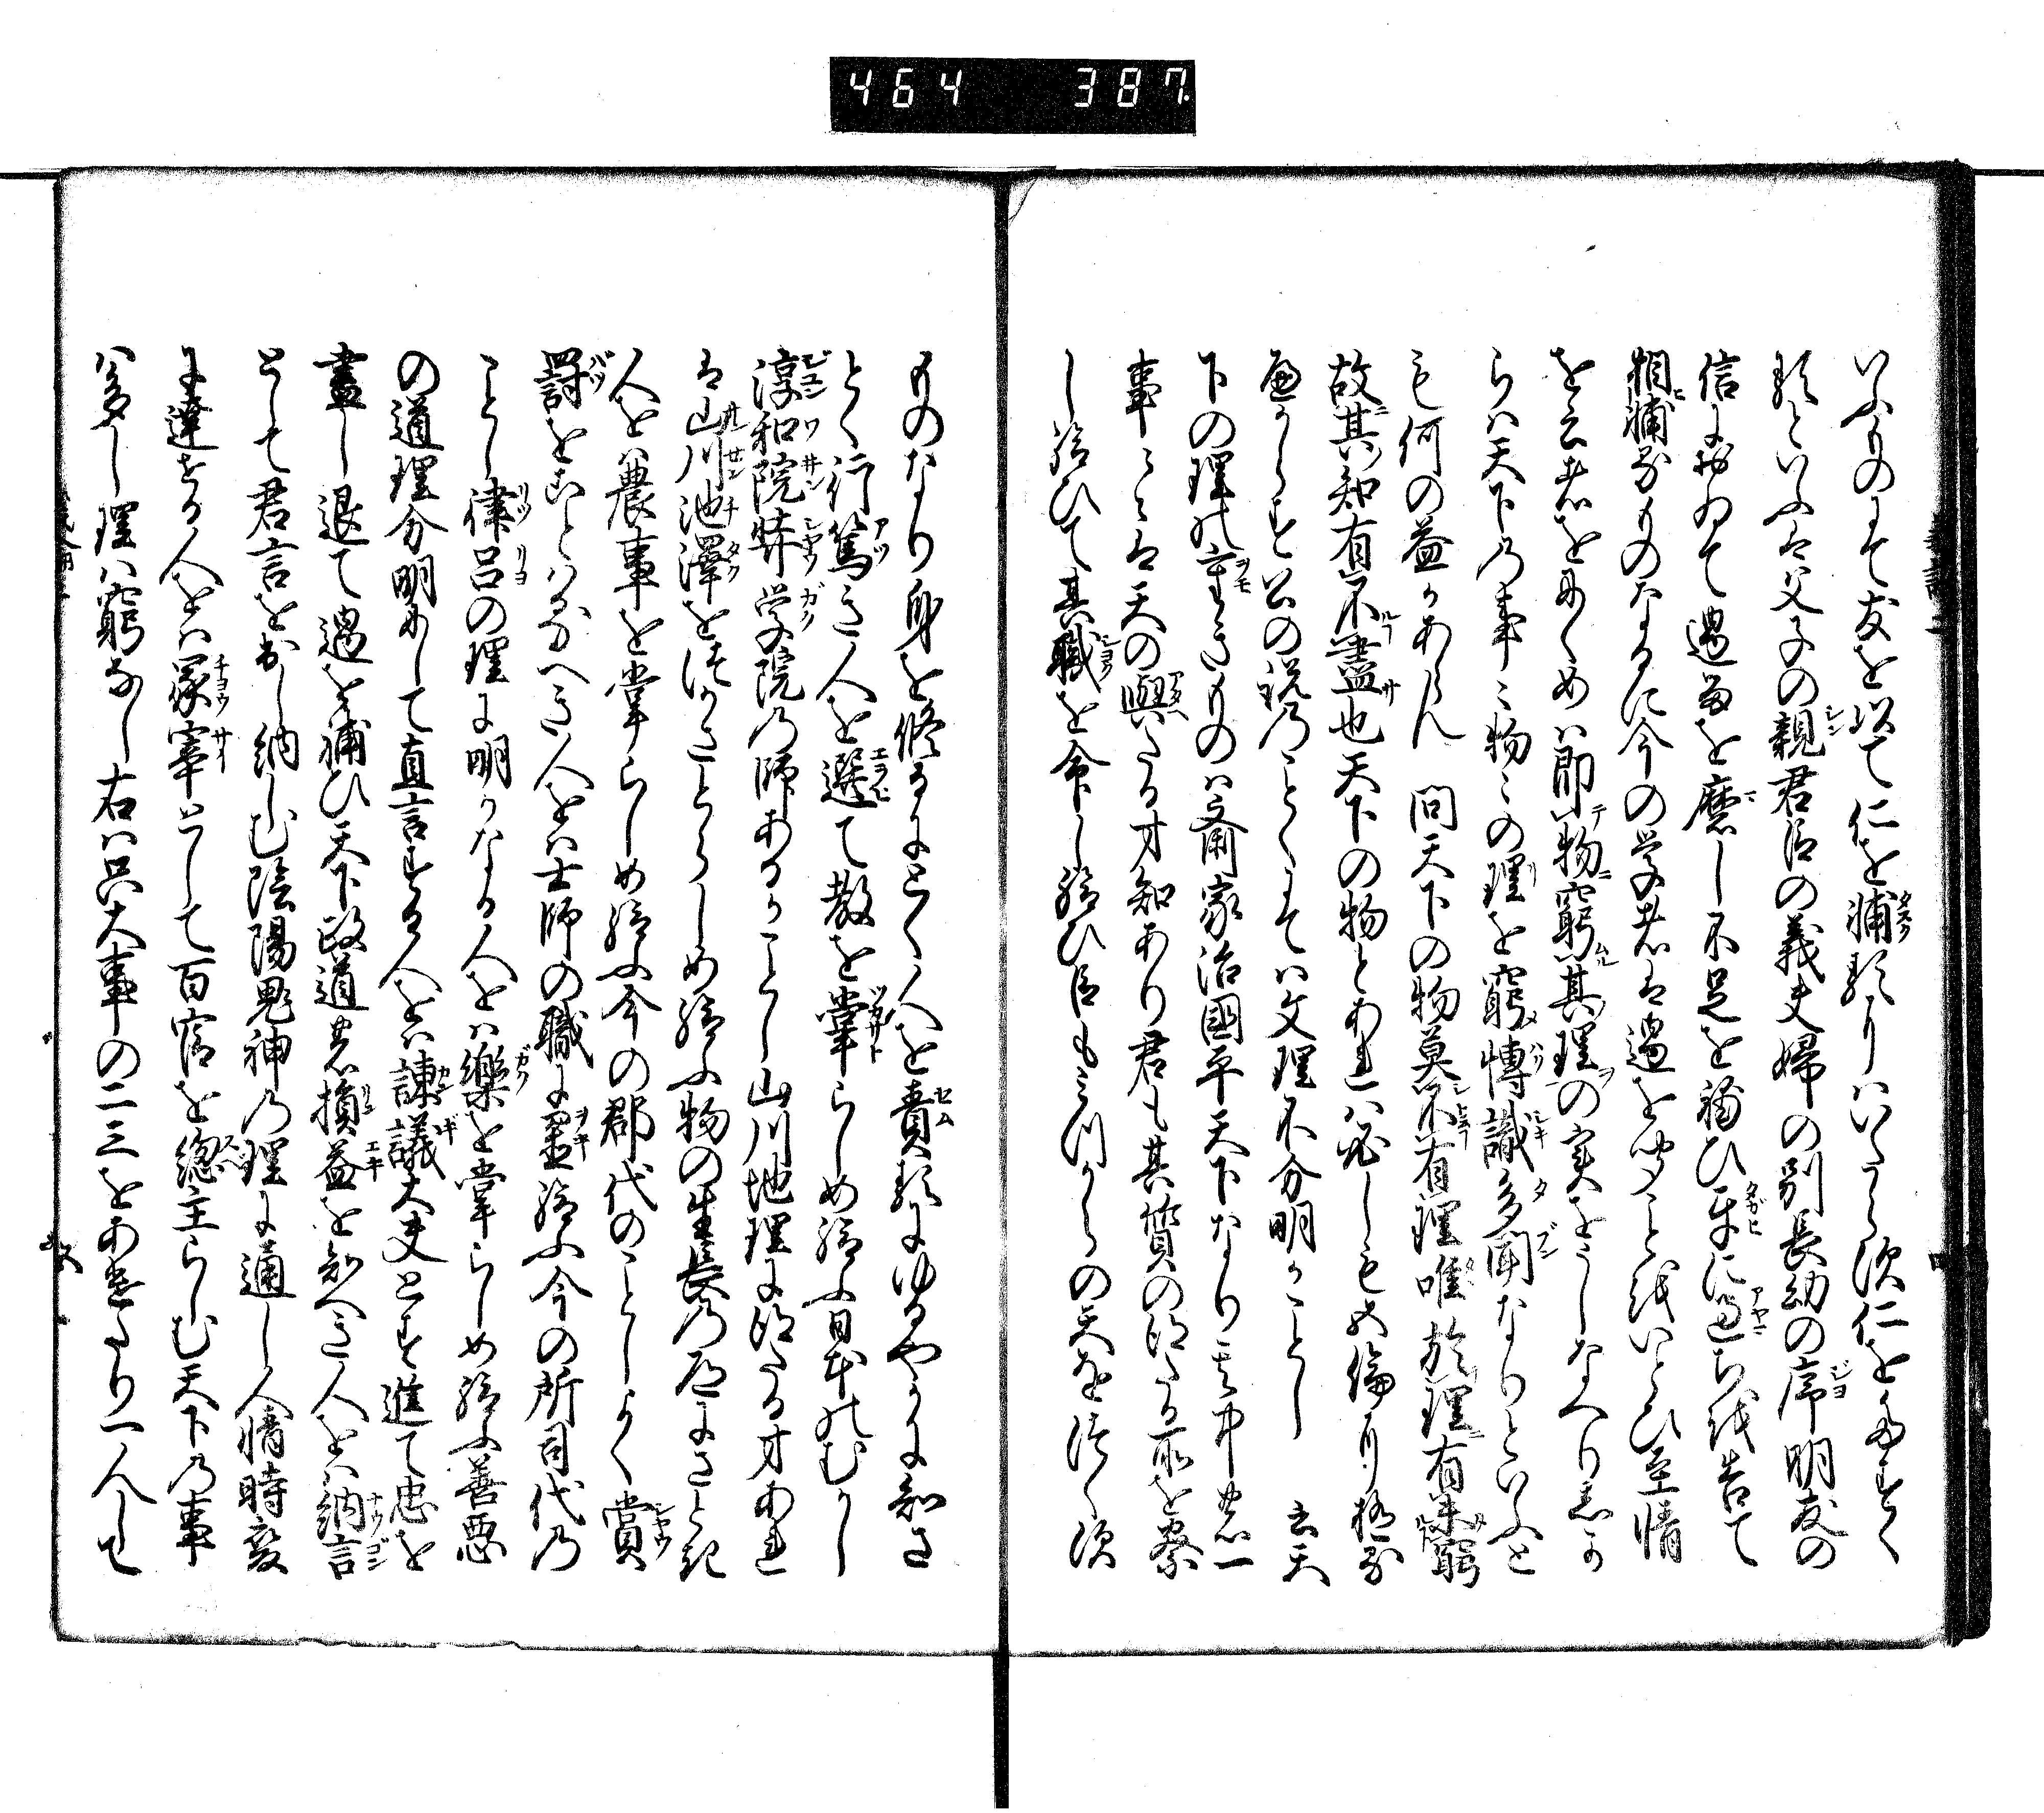 464 387
いふものにて友を以て仁を輔るりハいたらす仁をたすく
るといふは父子の親君臣の義夫婦の別長幼の序朋友の
信におゐて過蓄を磨し不足を補ひ互に過ち我告て
相輔るものなるに今の学者は過を聞こと我いとひ至情
を云者をにくめハ即物窮其理の実をうしなへりしか
らハ天下乃事ミ物ミの理を窮博識多聞なりといふと
も何の益かあらん 問天下の物莫不有理唯於理有未窮
故其知有不盡也天下の物とあれハ必しも五倫計格物
へからす公の説乃ことくにてハ文理不分明かことし 云天
下の理乃重きものハ斉家治國平天下なり其中の一
事ミは天の與たる才知あり君も其質の得たる所を察
し給ひて其職を命し給ひ臣もみつからの天を得く須
ものなり身を修るにとく人を責るにゆるやかに知さ
とく行篤き人を選て教を掌らしめ給ふ日本のむかし
淳和院弉学院乃師あるかことし山川地理に得たる才あれ
は山川池澤をつかさとらしめ給ふ物の生長乃道にさとき
人をハ農事を掌らしめ給ふ今の郡代のことしよく賞
罰をおこなへき人をハ士師の職に置給ふ今の所司代乃
ことし律呂の理に明かなる人をハ樂を掌らしめ給ふ善悪
の道理分明にして直言する人をハ諌議大夫とす進て忠を
盡し退て過を補ひ天下政道の損益を知へき人をハ納言
として君言を出し納しむ陰陽鬼神乃理に通し人情時変
に達する人をハ冢宰として百官を総主らしむ天下乃事
ハ多し理ハ窮なし右ハ只大事の二三をあけたり一人して